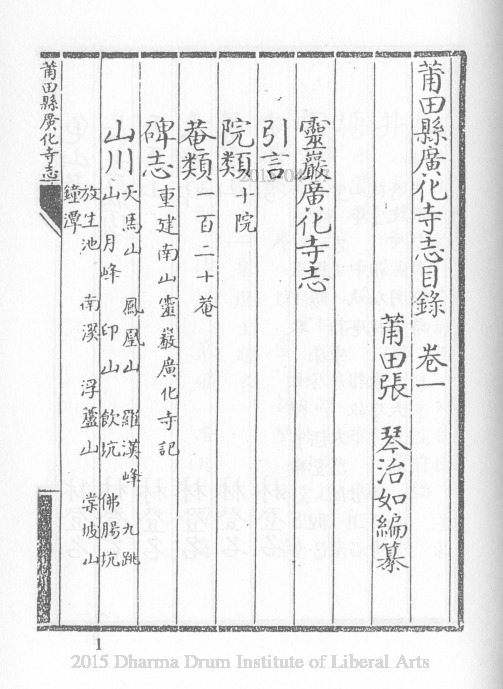 莆田縣廣化寺志目錄 卷一
莆田張 琴治如編纂
靈巖廣化寺志
引言
院類 十院
菴類 百二十菴
碑志 重建南山靈巖廣化寺記
山川 天馬山 鳳凰山 羅漢峰 九跳
山 月峰 印山 飲坑 佛腸坑
放生池 南溪 浮蘆山 棠坡山
鐘潭
莆田縣廣化寺志
1
2015 Dharma Drum Institute of Liberal Arts